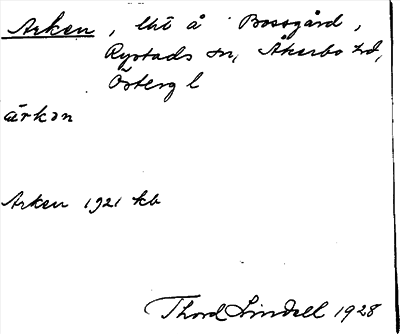 Arken, lht å Bossgård,
Rystads sn, Åkerbo hd,
Österg l
ärkən
Arken 1921 kb
Thord Lindell 1928